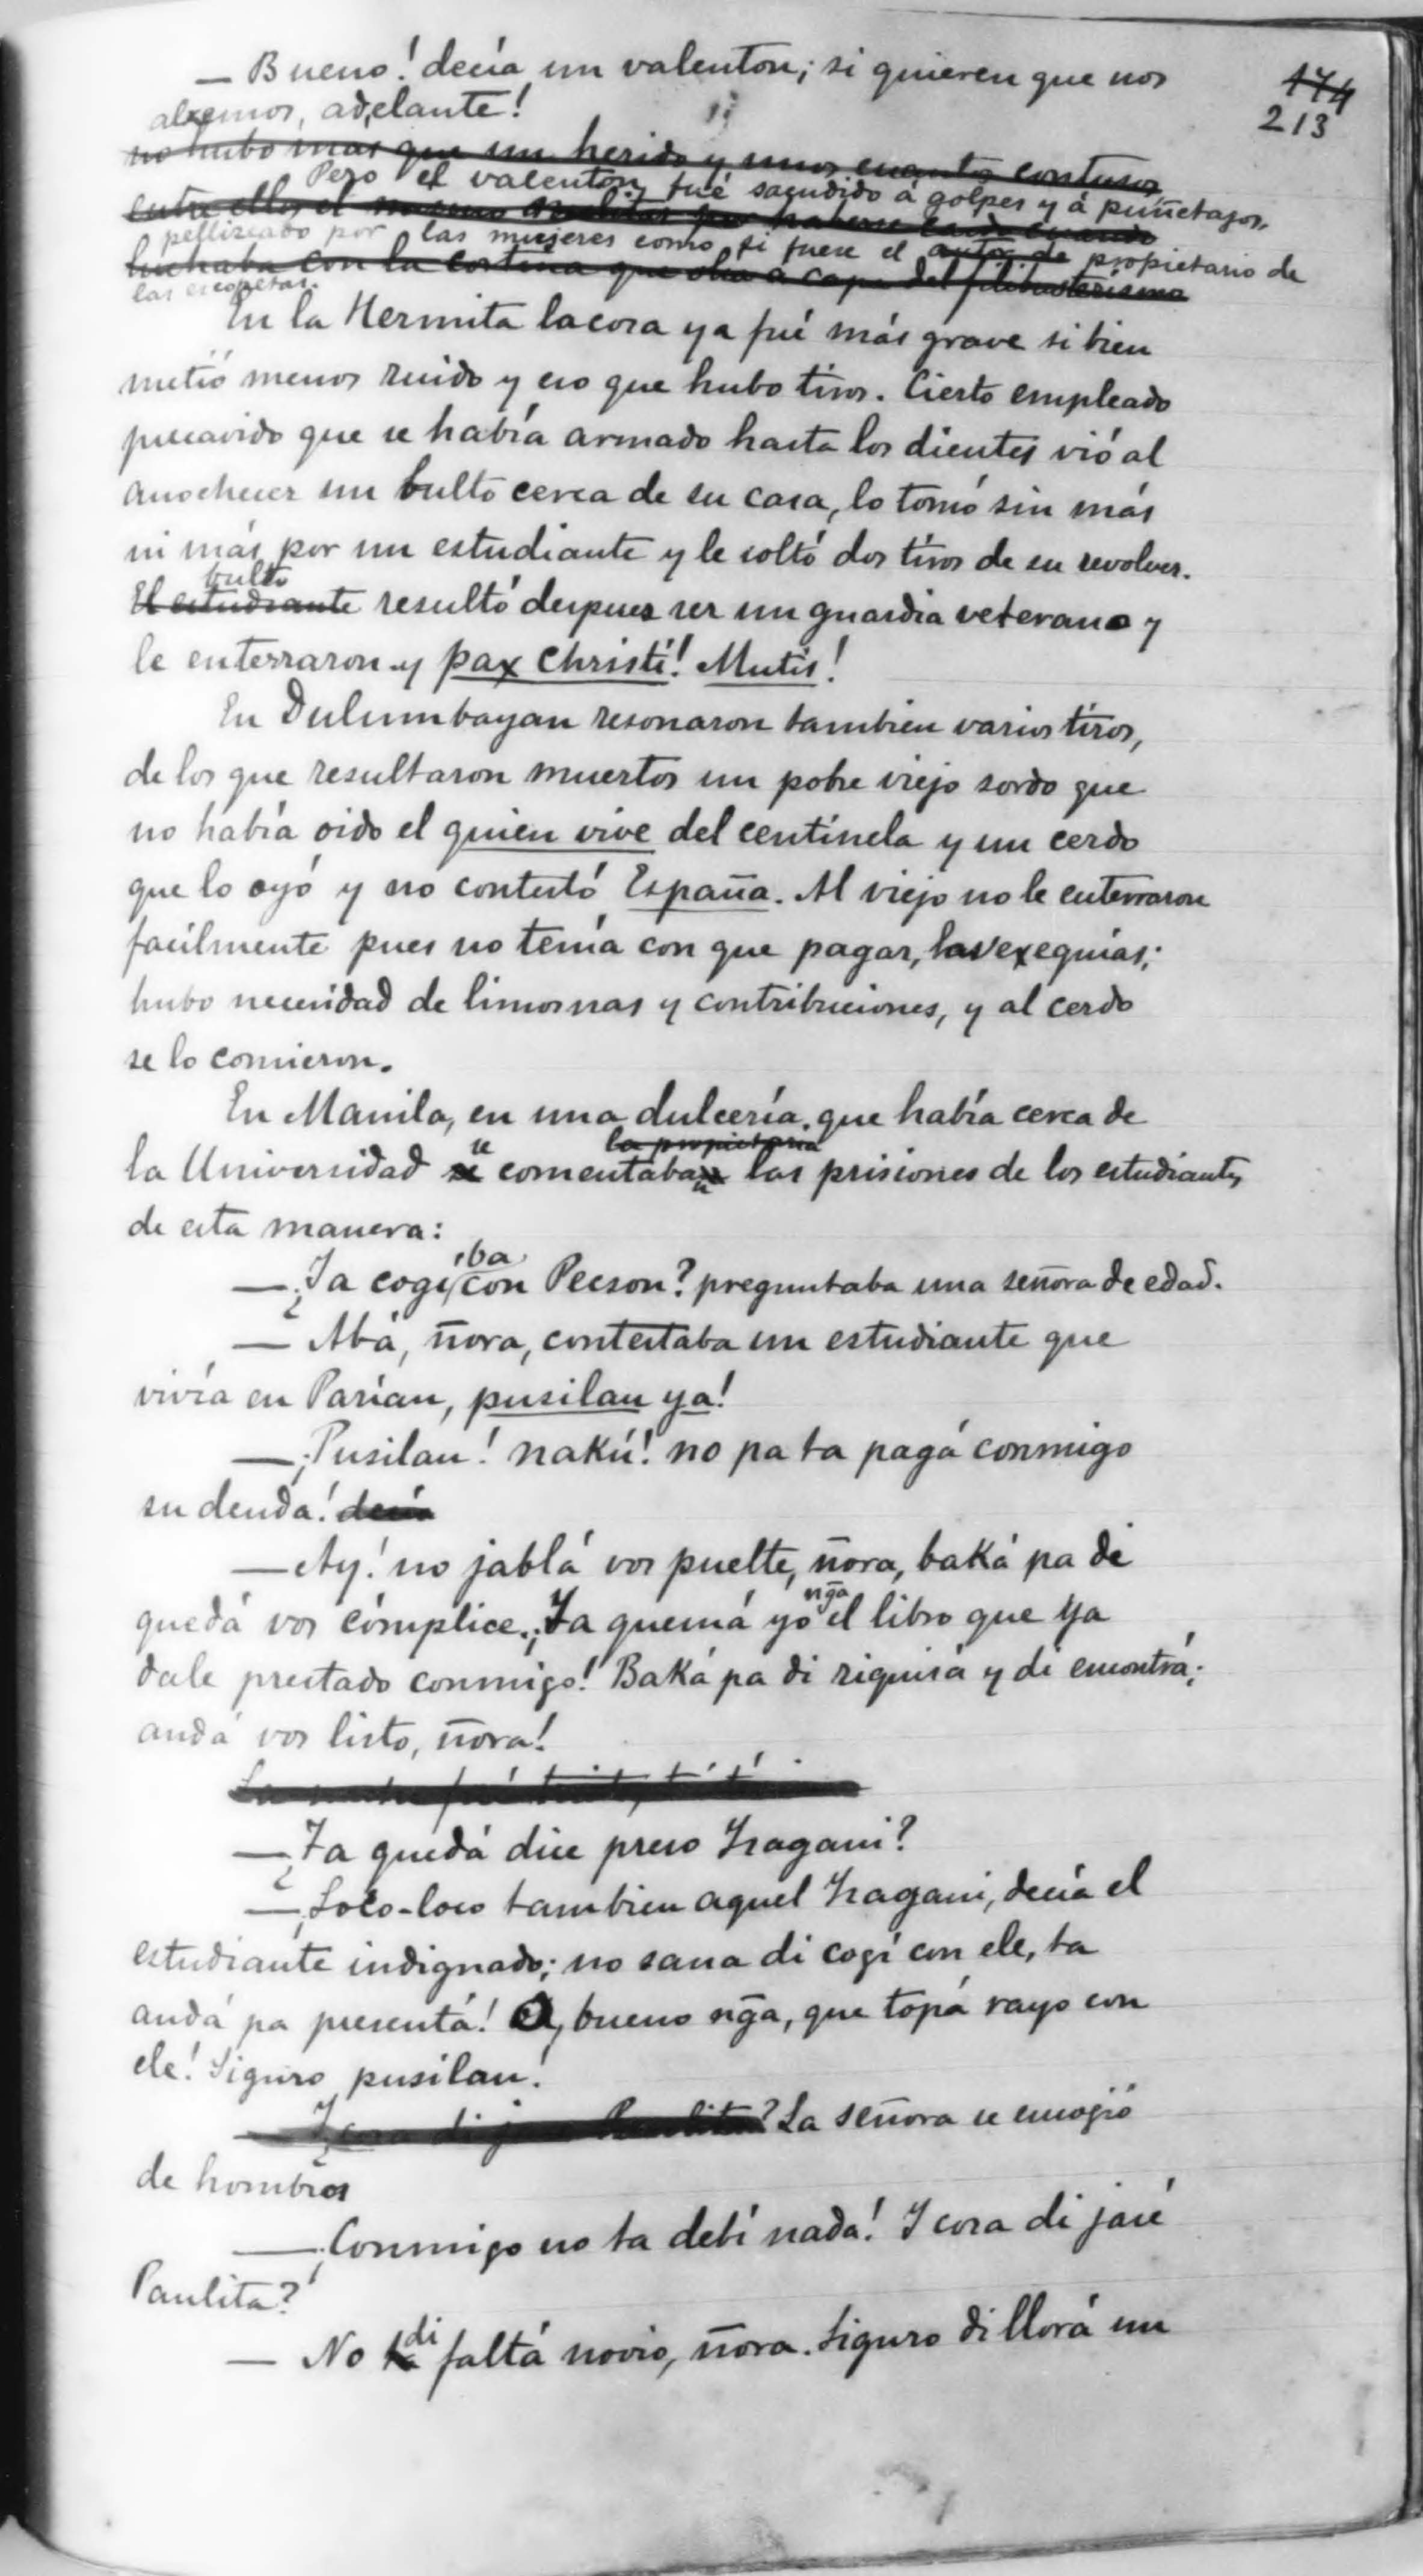 — Bueno! decía un valenton; si quieren que nos
174
213
alzemos, adelante!
no hubo mas que un herido y unos cuantos contusos
Pero el valenton fué sacudido á golpes y á puñetazos,
entre ellos el mismo por haberse caido cuando
pellizcado por las mujeres como si fuese el autor de propietario de
luchaba con la cortina que olia a capa del filibusterismo
las escopetas.
En la Hermita la cosa ya fué más grave si bien
metió menos ruido y eso que hubo tiros. Cierto empleado
precavido que se había armado hasta los dientes vió al
anochecer un bulto cerca de su casa, lo tomó sin más
ni más por un estudiante y le soltó dos tiros de su revolver.
bulto
El estudiante resultó despues ser un guardia veterano y
le enterraron y pax Christi! Mutis!
En Dulumbayan resonaron tambien varios tiros,
de los que resultaron muertos un pobre viejo sordo que
no había oido el quien vive del centinela y un cerdo
que lo oyó y no contestó España. Al viejo no le enterraron
facilmente pues no tenía con que pagar las exequias;
hubo necesidad de limosnas y contribuciones, y al cerdo
se lo comieron.
En Manila, en una dulcería que había cerca de
se la propietaria
la Universidad se comentaban las prisiones de los estudiantes
de esta manera:
ba
— ¿Ya cogí con Pecson? preguntaba una señora de edad.
— Abá, ñora, contestaba un estudiante que
vivía en Parían, pusilau ya!
— ¡Pusilau! nakú! no pa ta pagá conmigo
su deuda! decía
— Ay! no jablá vos puelte, ñora, baká pa di
nga
quedá vos cómplice. ¡Ya quemá yo el libro que ya
dale prestado conmigo! Baká pa di riquisá y di encontrá;
andá vos listo, ñora!
La noche fué
— ¿Ta quedá dice preso Isagani?
— ¡Loco-loco tambien aquel Isagani, decía el
estudiante indignado; no sana di cogí con ele, ta
andá pa presentá! O, bueno nga, que topá rayo con
ele! Siguro pusilau!
Y cosa di Paulita? La señora se encogió
de hombros
— ¡Conmigo no ta debí nada! Y cosa di jasé
Paulita?
di
— No ta faltá novio, ñora. Siguro di llorá un